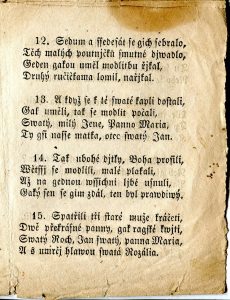 12. Sedum a ssedesát se gich sebralo,
Těch malých poutnjčků smutné djwadlo,
Geden gakou uměl modlitbu řjkal,
Druhý ručičkama lomil, nařjkal.
13. A když se k té swaté kapli dostali,
Gak uměli, tak se modlit počali,
Swatý, milý Jene, Panno Maria,
Ty gsi nasse matka, otec swatý Jan.
14. Tak ubohé djtky, Boha prosili,
Wětssj se modlili, malé plakali,
Až na gednou wssichni ljbě usnuli,
Gaký sen se gim zdál, ten byl prawdiwý.
15. Spatřili tři staré muže kráčeti,
Dwě překrásné panny, gak ragské kwjtj,
Swatý Roch, Jan swatý, panna Maria,
A s umrlčj hlawou swatá Rozália.